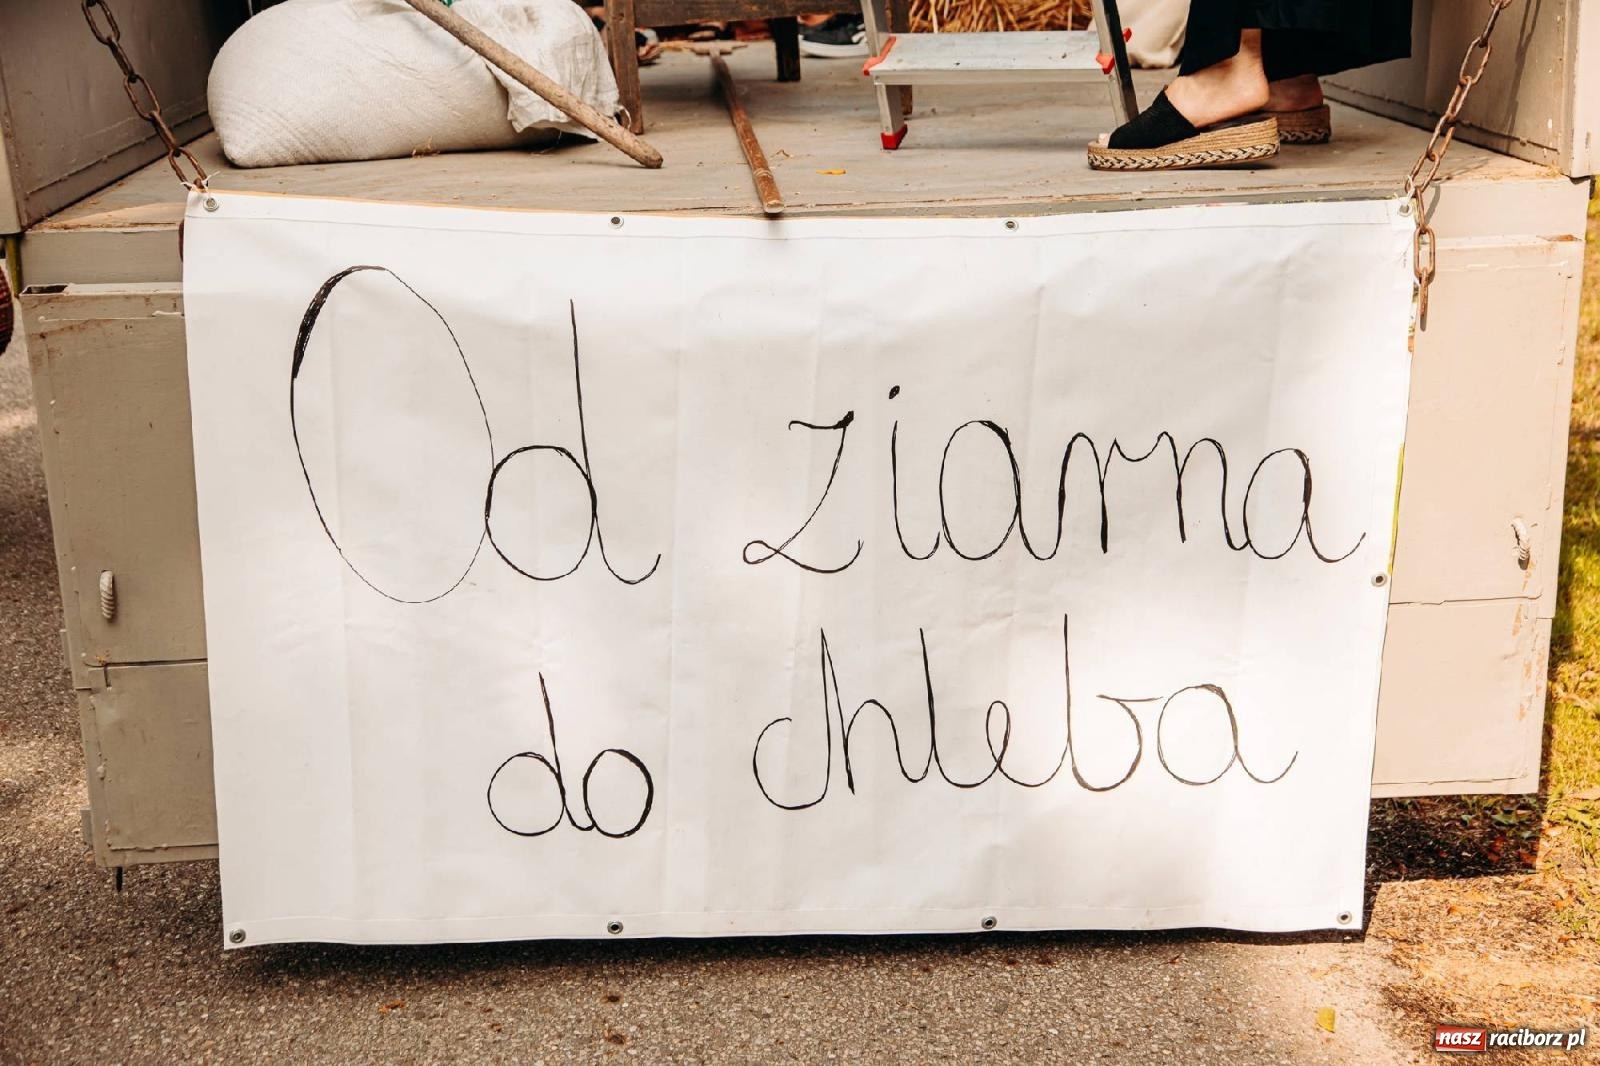 Od ziarna
do chleba
nasz raciborz.pl